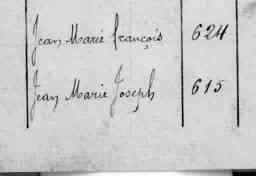 Jean Marie françois 624
Jean Marie Joseph 615